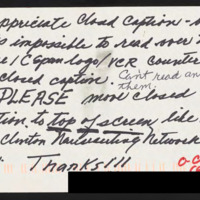 appreciate closed caption -
impossible to read over
/CSpan logo/VCR counter
closed caption. Can't read any
them.
PLEASE move closed
tion to top of screen like
Clinton Nailvention Network
Thanks!!!